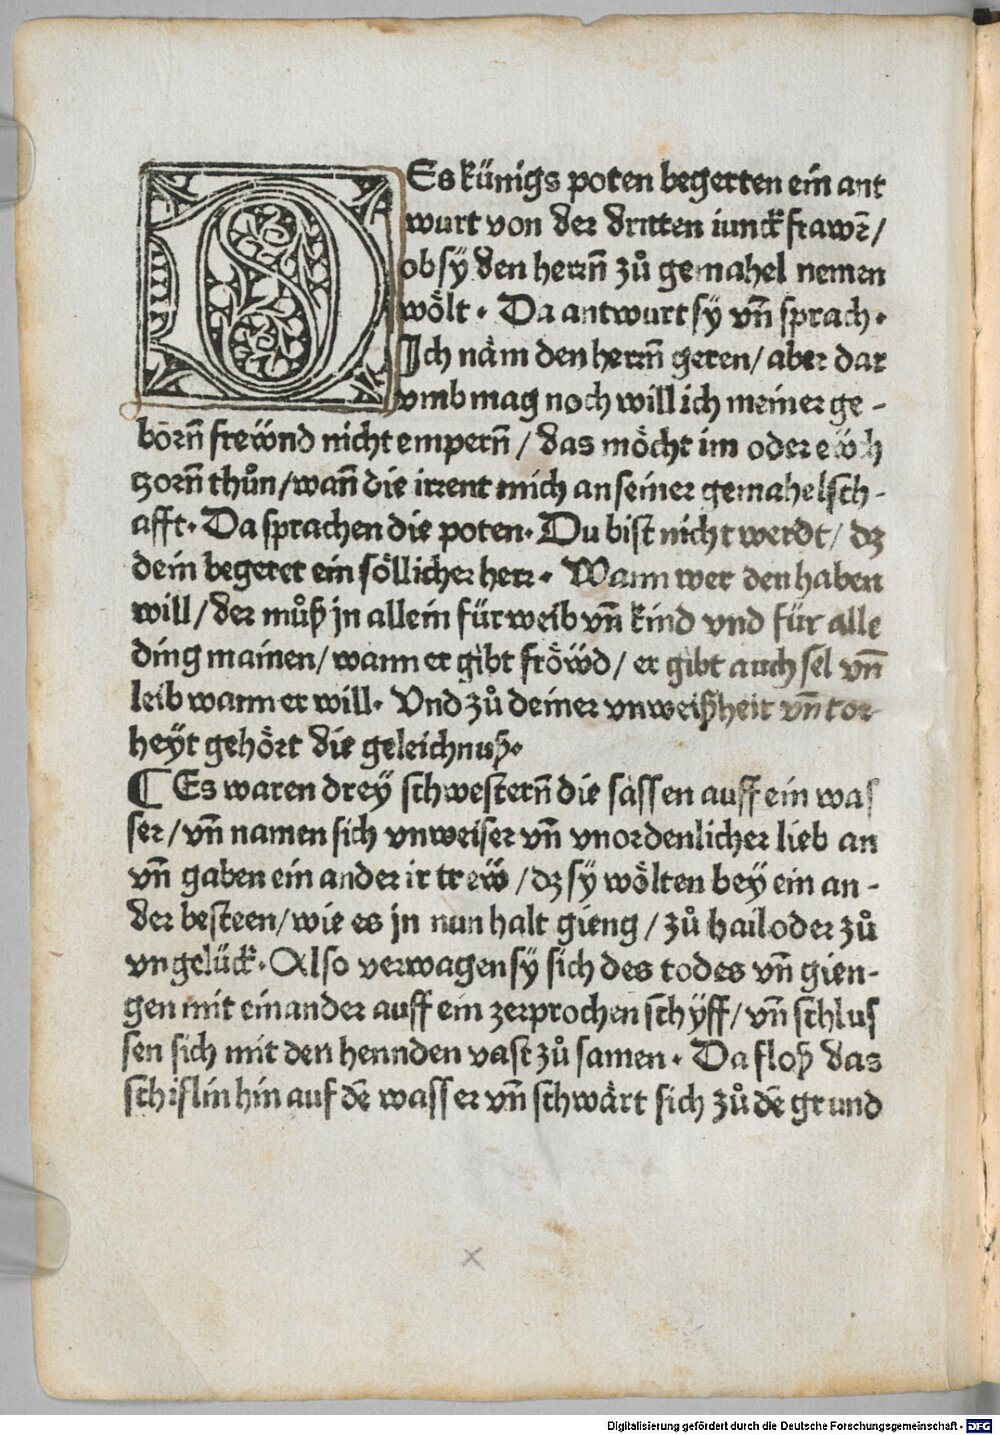 DEs künigs poten begerten ein ant
wurt von der dritten iunckfrawē/
ob sÿ den herrñ zů gemahel nemen
wölt. Da antwurt sÿ vñ sprach.
Ich näm den herrñ geren/ aber dar
vmb mag noch will ich meiner ge-
borñ freẅnd nicht emperñ/ das möcht im oder eẅch
zorñ thůn/wañ die irrent mich an seiner gemahelsch-
afft. Da sprachen die poten. Du bist nicht werdt/ dz
dein begeret ein söllicher herr. Wann wer den haben
will/der můß jn allein für weib vñ kind vnd für alle
ding mainen/wann er gibt fröẅd/ er gibt auch sel vñ
leib wann er will. Vnd zů deiner vnweißheit vñ tor-
heÿt gehört die geleichnuß.
¶ Es waren dreÿ schwesterñ die sässen auff ein was
ser/vñ namen sich vnweiser vñ vnordenlicher lieb an
vñ gaben ein ander ir treẅ/dz sÿ wölten beÿ ein an-
der besteen/wie es jn nun halt gieng/zů hail oder zů
vngelück. Also verwagen sÿ sich des todes vñ gien-
gen mit einander auff ein zerprochen schÿff/vñ schlus
sen sich mit den hennden vast zů samen. Da floß das
schiflin hin auf dē wasser vñ schwärt sich zů dē grund
Digitalisierung gefördert durch die Deutsche Forschungsgemeinschaft - DFG